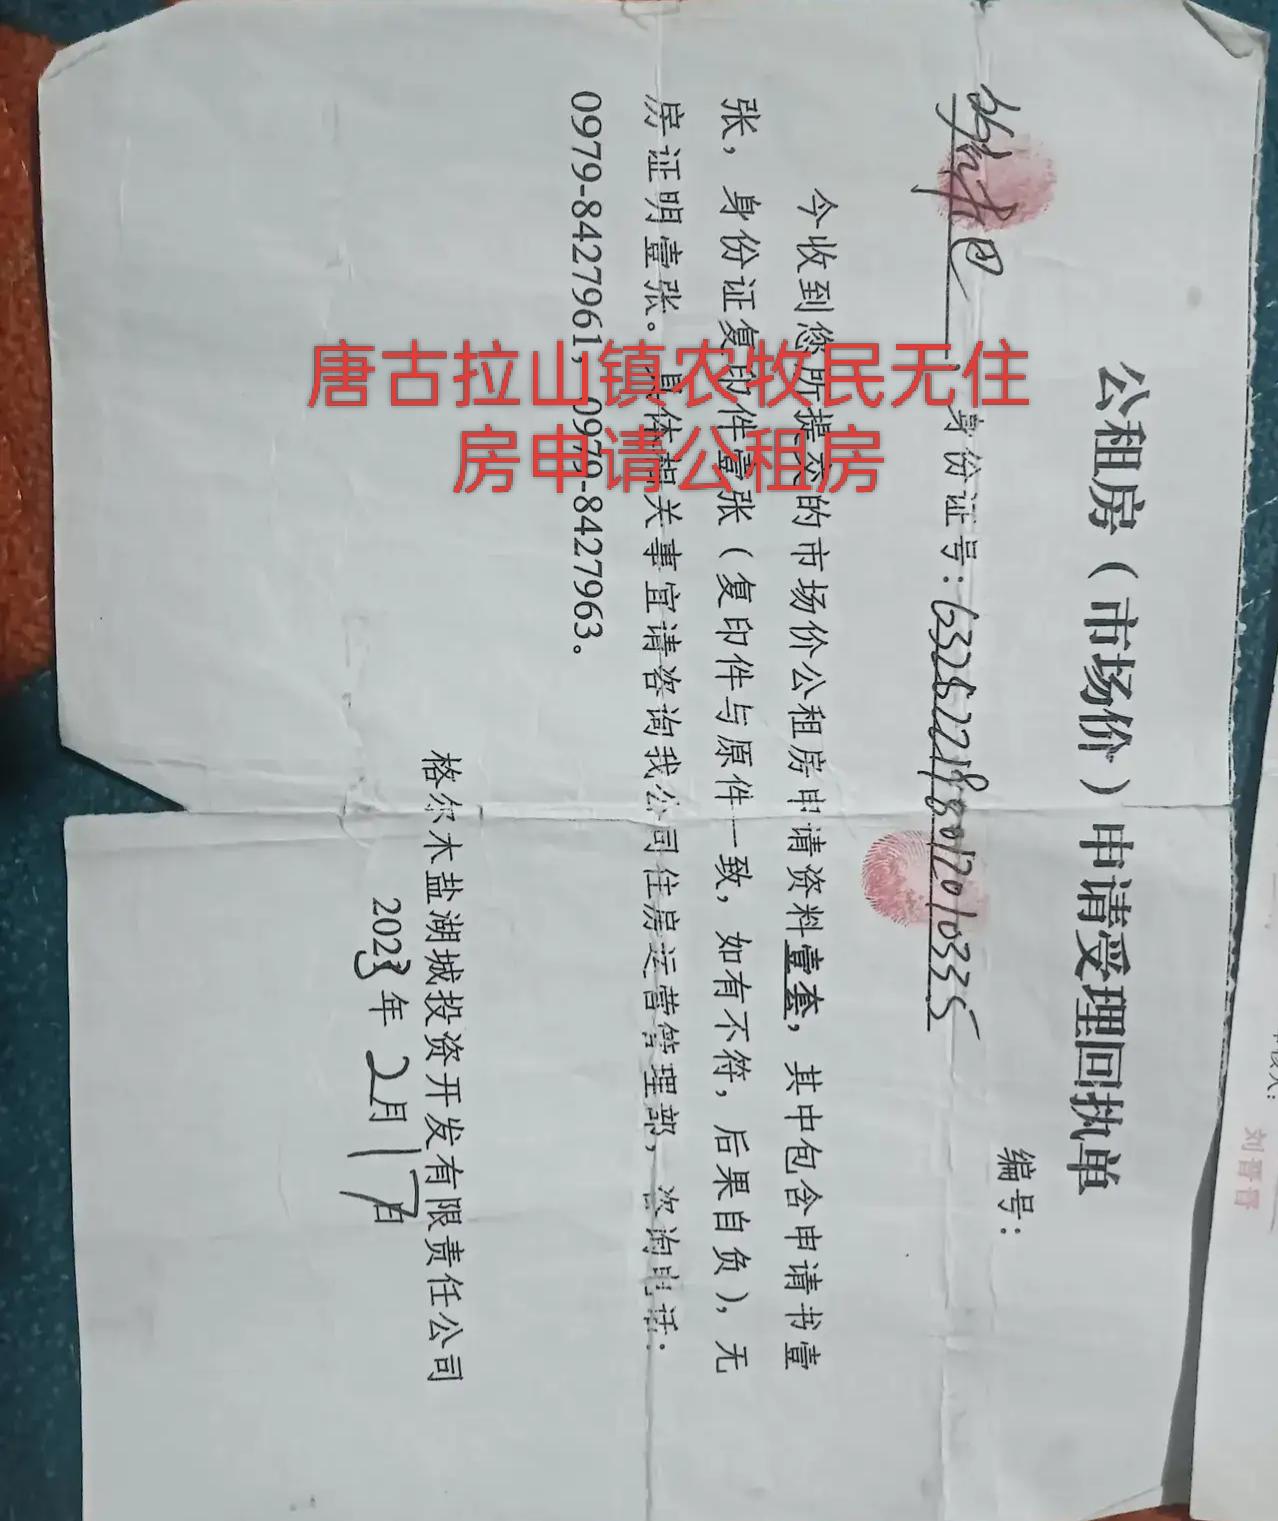 公租房（市场价）申请受理回执单
编号：
身份证号：632522198012010335
今收到您所提交的市场价公租房申请资料壹套，其中包含申请书壹
张，身份证复印件壹张（复印件与原件一致，如有不符，后果自负），无
房证明壹张。具体相关事宜请咨询我公司住房运营管理部，咨询电话：
0979-8427961，0979-8427963。
格尔木盐湖城投资开发有限责任公司
2023年2月17日
唐古拉山镇农牧民无住
房申请公租房
刘晋晋